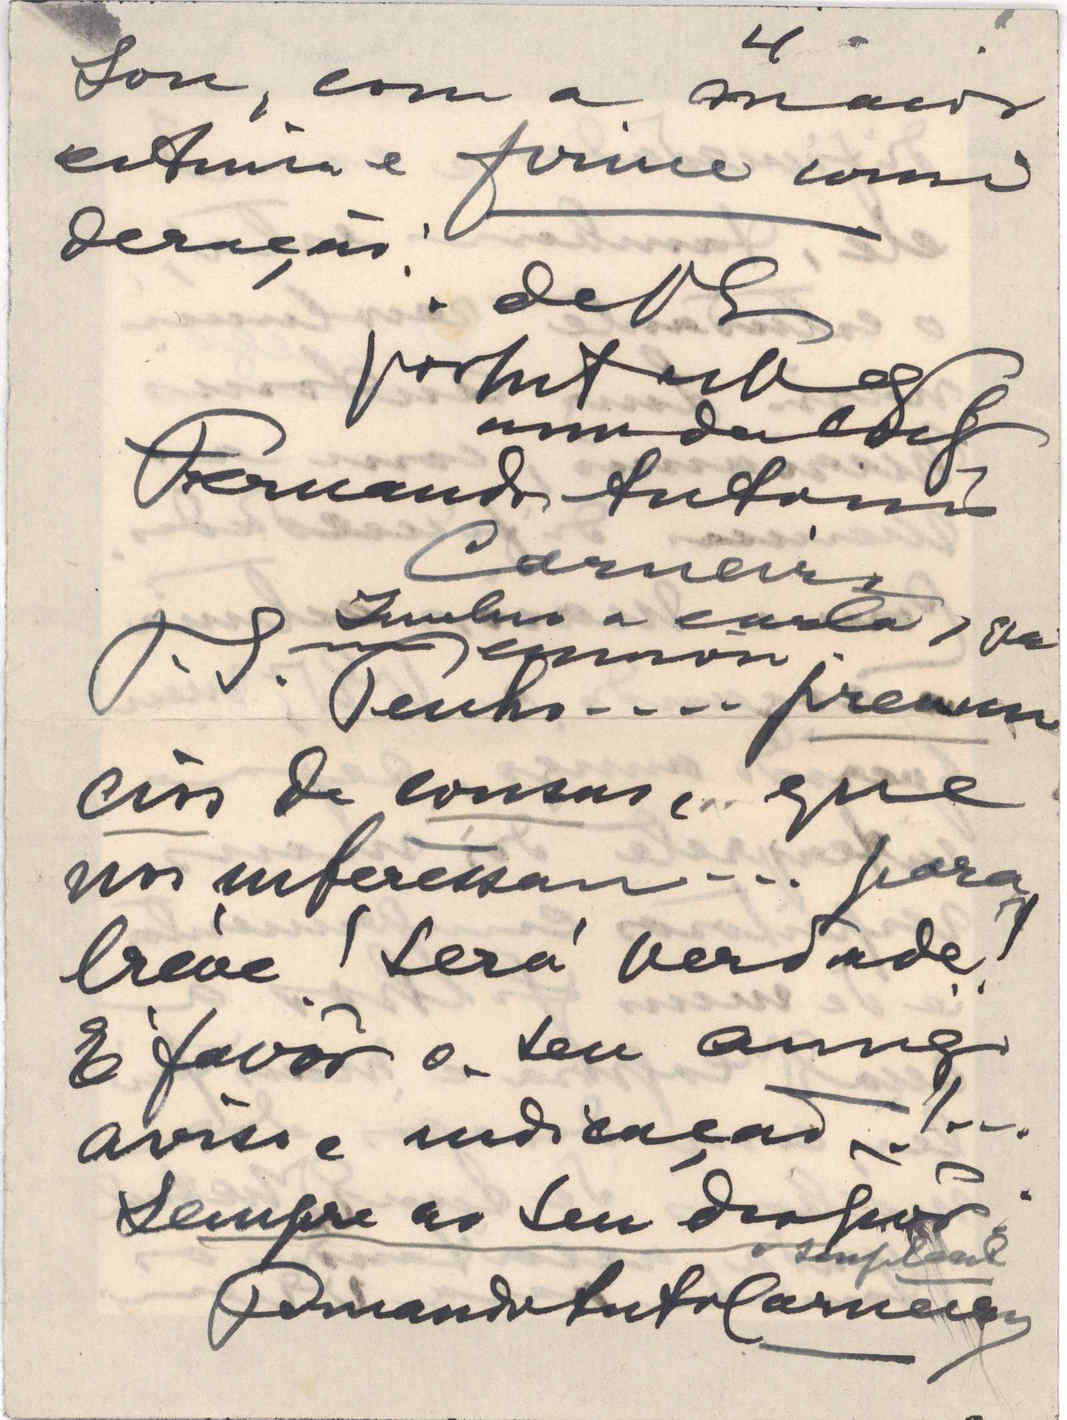 4
Sou, com a maior
estima e firme consi
deração:
de V. E.
Fernando Antonio
Carneiro
P. S. a carta,
Tenho.... prenun
cios de cousas,... que
nos interessam.... para
bréve! Será verdade!
É favôr o seu amigo
aviso e indicação...!...
Sempre ao seu dispôr.
Fernando Anto Carneiro